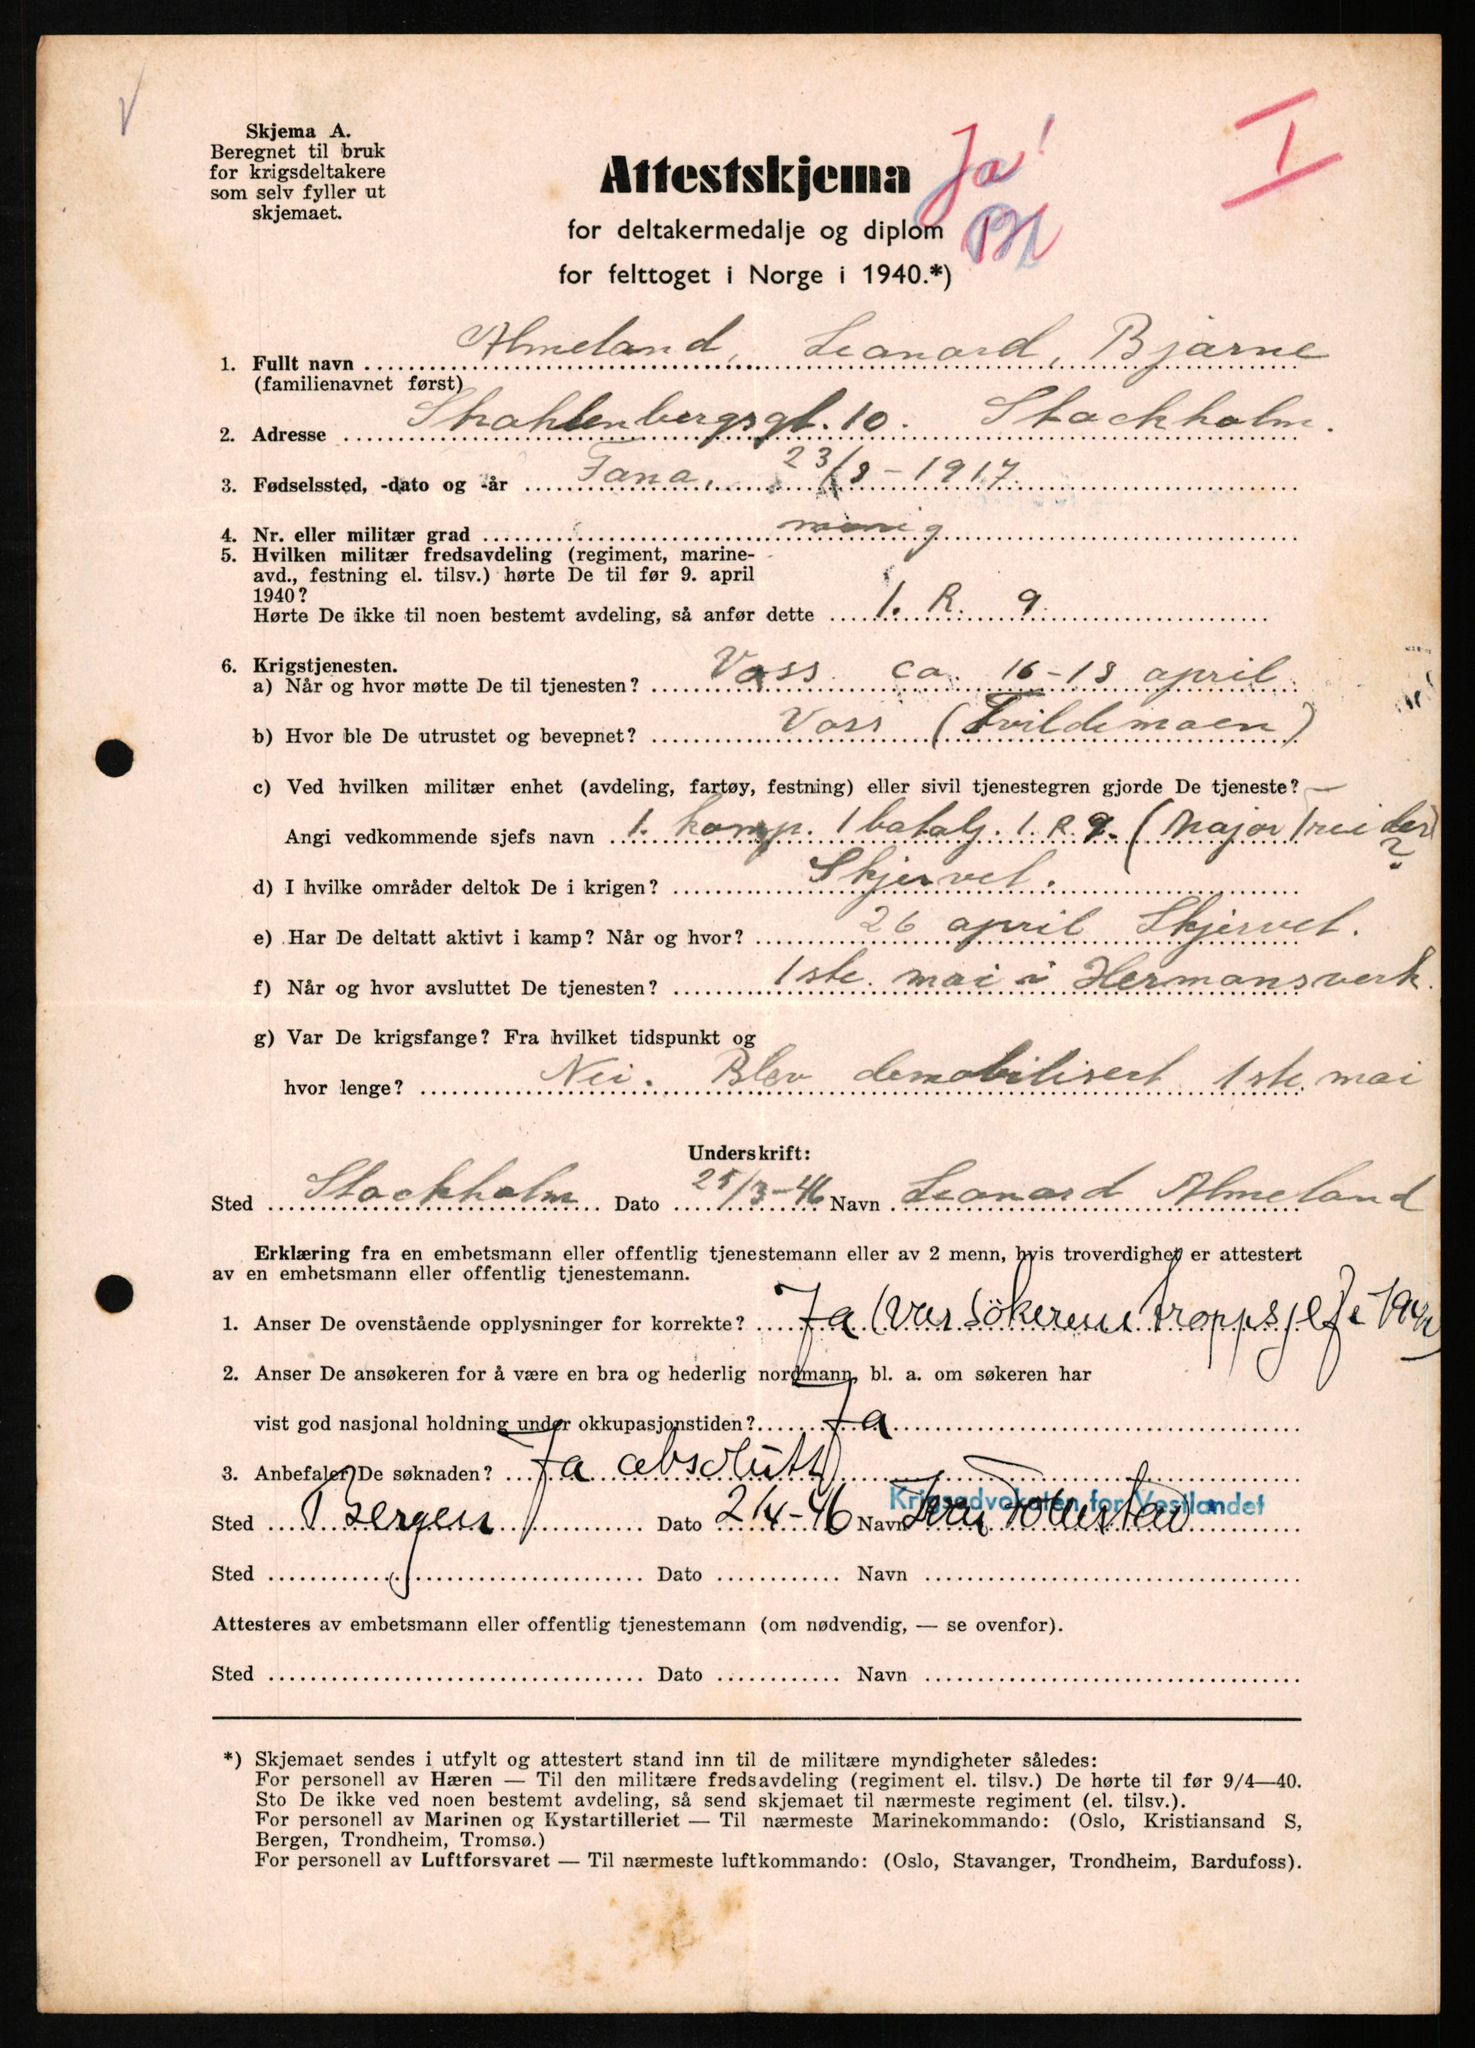 V
Skjema A.
Beregnet til bruk
for krigsdeltakere
som selv fyller ut
skjemaet.
Ja!
I
Attestskjema
for deltakermedalje og diplom
for felttoget i Norge i 1940.*)
1. Fullt navn Almeland, Leonard, Bjarne
(familienavnet først)
2. Adresse Strahlenbergsgt. 10. Stockholm.
3. Fødselssted, -dato og -år Fana, 23/8-1917.
4. Nr. eller militær grad menig
5. Hvilken militær fredsavdeling (regiment, marine-
avd., festning el. tilsv.) hørte De til før 9. april
1940?
Hørte De ikke til noen bestemt avdeling, så anfør dette I. R. 9.
6. Krigstjenesten.
a) Når og hvor møtte De til tjenesten? Voss ca. 16-18 april
b) Hvor ble De utrustet og bevepnet? Voss (Tvildemoen)
c) Ved hvilken militær enhet (avdeling, fartøy, festning) eller sivil tjenestegren gjorde De tjeneste?
Angi vedkommende sjefs navn 1. komp. 1 batalj. I.R.9. (Major Treider) ?
d) I hvilke områder deltok De i krigen? Skjervet.
e) Har De deltatt aktivt i kamp? Når og hvor? 26 april Skjervet.
f) Når og hvor avsluttet De tjenesten? 1ste. mai i Hermansverk.
g) Var De krigsfange? Fra hvilket tidspunkt og
hvor lenge? Nei. Blev demobilisert 1ste. mai
Underskrift:
Sted Stockholm Dato 25/3-46 Navn Leonard Almeland
Erklæring fra en embetsmann eller offentlig tjenestemann eller av 2 menn, hvis troverdighet er attestert
av en embetsmann eller offentlig tjenestemann.
1. Anser De ovenstående opplysninger for korrekte? Ja (var søkerens troppsjef i 1940)
2. Anser De ansøkeren for å være en bra og hederlig nordmann, bl. a. om søkeren har
vist god nasjonal holdning under okkupasjonstiden? Ja
3. Anbefaler De søknaden? Ja absolutt
Krigsadvokaten for Vestlandet
Sted Bergen Dato 2/4-46 Navn
Sted Dato Navn
Attesteres av embetsmann eller offentlig tjenestemann (om nødvendig, — se ovenfor).
Sted Dato Navn
*) Skjemaet sendes i utfylt og attestert stand inn til de militære myndigheter således:
For personell av Hæren — Til den militære fredsavdeling (regiment el. tilsv.) De hørte til før 9/4—40.
Sto De ikke ved noen bestemt avdeling, så send skjemaet til nærmeste regiment (el. tilsv.).
For personell av Marinen og Kystartilleriet — Til nærmeste Marinekommando: (Oslo, Kristiansand S,
Bergen, Trondheim, Tromsø.)
For personell av Luftforsvaret — Til nærmeste luftkommando: (Oslo, Stavanger, Trondheim, Bardufoss).